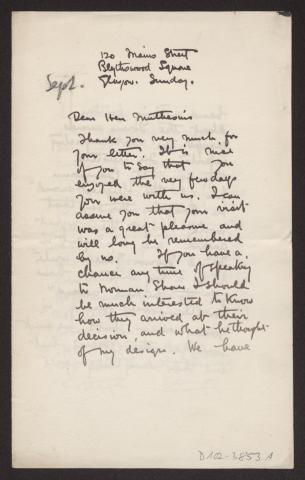 120 Mains Street
Blythswood Square
Glasgow. Sunday.
Sept.
Dear Herr Muthesius
Thank you very much for
your letter. It is nice
of you to say that you
enjoyed the very few days
you were with us. I can
assure you that your visit
was a great pleasure and
will long be remembered
by us. If you have a
chance any time of speaking
to Norman Shaw I should
be much interested to know
how they arrived at their
decision, and what he thought
of my design. We have
D102-3853 A